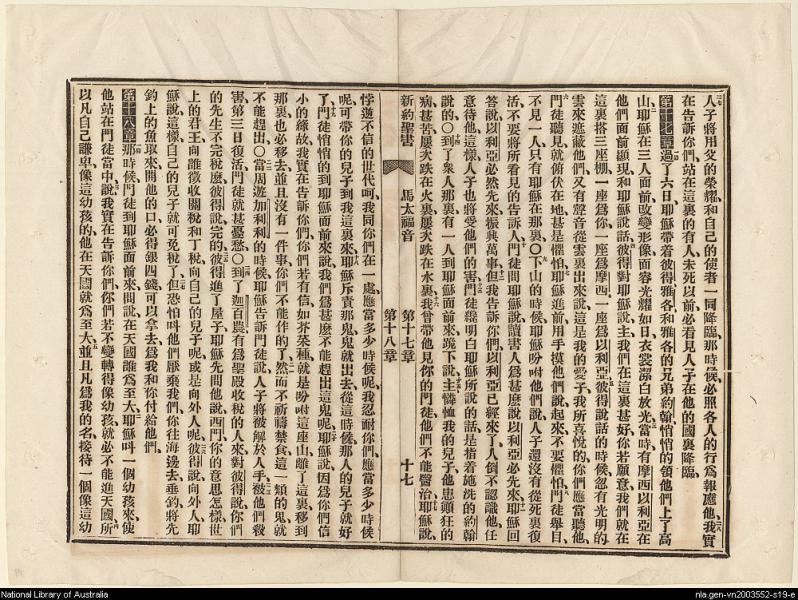 人子將用父的榮耀和自己的使者一同降臨、那時候必照各人的行爲報應他、我實
在告訴你們、站在這裏的有人未死以前、必看見人子在他的國裏降臨、
第十七章過了六日、耶穌帶着彼得雅各和雅各的兄弟約翰、悄悄的領他們上了高
山、耶穌在三人面前、改變形像、面容光耀如日、衣裳潔白放光、當時有摩西以利亞在
他們面前顯現、和耶穌說話、彼得對耶穌說、主、我們在這裏甚好、你若願意我們就在
這裏搭三座棚、一座爲你、一座爲摩西、一座爲以利亞、彼得說話的時候、忽有光明的
雲來遮蔽他們、又有聲音從雲裏出來說、這是我的愛子、我所喜悅的、你們應當聽他、
門徒聽見、就俯伏在地、甚是懼怕、耶穌進前用手摸他們說、起來、不要懼怕、門徒舉目、
不見一人、只有耶穌在那裏○下山的時候、耶穌吩咐他們說、人子還沒有從死裏復
活、不要將所看見的告訴人、門徒問耶穌說、讀書人爲甚麽說、以利亞必先來、耶穌回
答說、以利亞必然先來、振興萬事、但我告訴你們、以利亞已經來了、人倒不認識他、任
意待他、這樣、人子也將受他們的害、門徒纔明白耶穌所說的話、是指着施洗的約翰
說的、○到了衆人那裏、有一人到耶穌面前來、跪下說、主、憐恤我的兒子、他患瘋狂的
病甚苦、屢次跌在火裏、屢次跌在水裏、我曾帶他見你的門徒、他們不能醫治、耶穌說、
新約聖書 馬太福音 第十七章 第十八章 十七
悖逆不信的世代呢、我同你們在一處、應當多少時候呢、我忍耐你們、應當多少時候
呢、可帶你的兒子到我這裏來、耶穌斥責那鬼、鬼就出去、從這時候、那人的兒子就好
了、門徒悄悄的到耶穌面前來說、我們爲甚麽不能趕出這鬼呢、耶穌說、因爲你們信
小的緣故、我實在告訴你們、你們若有信如芥菜種、就是吩咐這座山、離了這裏移到
那裏、也必移去、並且沒有一件事、你們不能作的了、然而不祈禱禁食、這一類的鬼、就
不能趕出○當周遊加利利的時候、耶穌告訴門徒說、人子將被解於人手、被他們殺
害、第三日復活、門徒就甚憂愁、○到了迦百農、有爲聖殿收稅的人來對彼得說、你們
的先生不完稅麽、彼得說、完的、彼得進了屋子、耶穌先問他說、西門你的意思怎樣、世
上的君王、向誰徵收關稅和丁稅、向自己的兒子呢、或是向外人呢、彼得說、向外人、耶
穌說、這樣、自己的兒子就可免稅了、但恐怕叫他們厭棄我們、你往海邊去垂釣、將先
釣上的魚取來、開他的口、必得銀四錢、可以拿去、爲我和你付給他們、
第十八章那時候門徒到耶穌面前來問說、在天國誰爲至大、耶穌叫一個幼孩來、使
他站在門徒當中、說、我實在告訴你們、你們若不變轉得像幼孩、就必不能進天國、所
以凡自己謙卑像這幼孩的、他在天國就爲至大、並且凡爲我的名、接待一個像這幼
National Library of Australia
nla.gen-vn2003552-s19-e